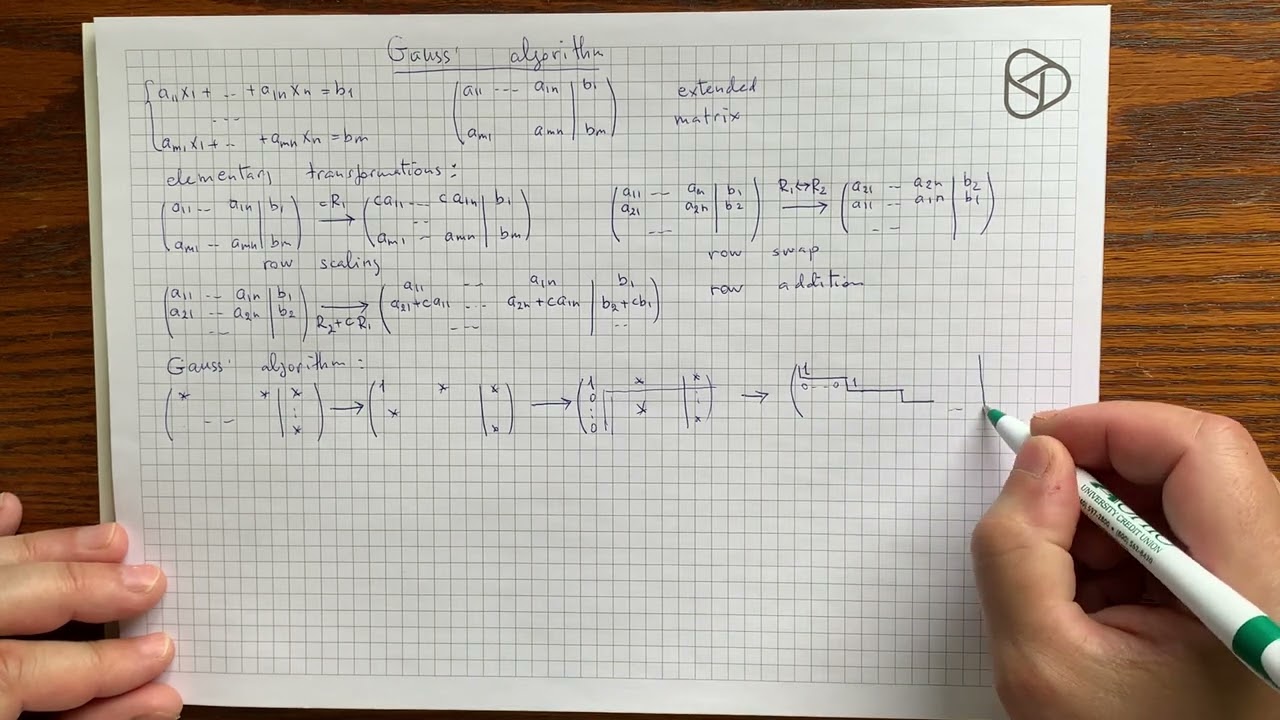 Gauss' algorithm
a11 x1 + -- + a1n xn = b1
---
am1 x1 + -- + amn xn = bm
( a11 --- a1n | b1
am1 amn | bm )
extended
matrix
elementary transformations:
( a11 -- a1n | b1
am1 -- amn | bm )
cR1 →
( ca11 --- ca1n | b1
--
am1 -- amn | bm )
row scaling
( a11 -- an | b1
a21 a2n | b2
--- )
R1↔R2 →
( a21 -- a2n | b2
a11 -- a1n | b1
-- )
row swap
( a11 -- a1n | b1
a21 -- a2n | b2
-- )
→ R2+cR1
( a11 -- a1n | b1
a21+ca11 --- a2n+ca1n | b2+cb1
--- -- )
row addition
Gauss' algorithm:
( * * | *
-- ⋮
* )
→
( 1 * | *
* | * )
→
( 1 * | *
0 * ⋮
⋮
0 | * )
→
( 1
0 -- 0 1
-- |
UNIVERSITY CREDIT UNION